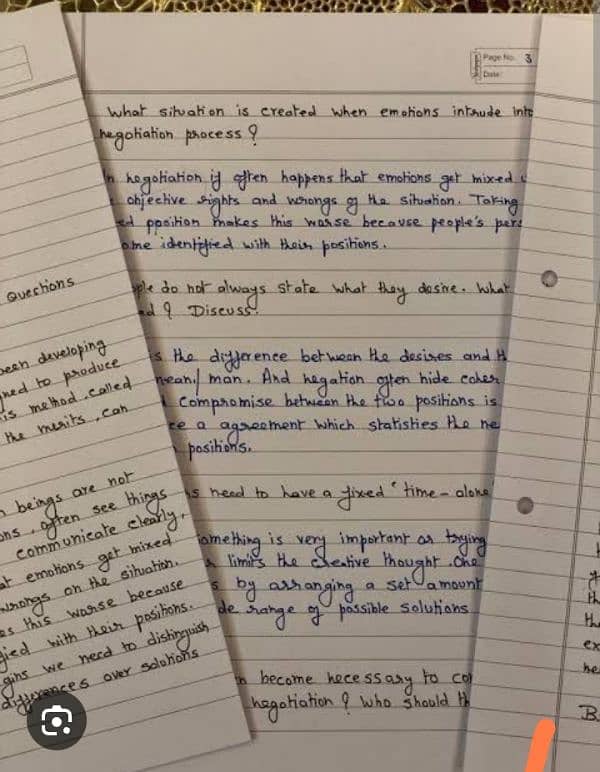 Page No. 3
Date:
What situation is created when emotions intrude into
negotiation process ?
In negotiation it often happens that emotions get mixed
objective rights and wrongs of the situation. Taking
ed ppoition makes this worse because people's pers
ome identified with their positions.
ple do not always state what they desire. What
d ? Discuss.
s the difference between the desires and
mean/ man. And negation often hide
Compromise between the two positions is
ce a agreement which statisties the ne
positions.
is need to have a fixed "time-alone"
something is very important as trying
limits the creative thought. One
s by arranging a set amount
de range of possible solutions
n become necessary to co
negotiation ? Who should th
Questions
been developing
ned to produce
is method, called
the merits, can
n beings are not
ons, often see things
communicate clearly,
at emotions get mixed
wrongs on the situation.
es this worse because
fied with their positions.
gins we need to distinguish
differences over solutions
th
the
ex
he
B